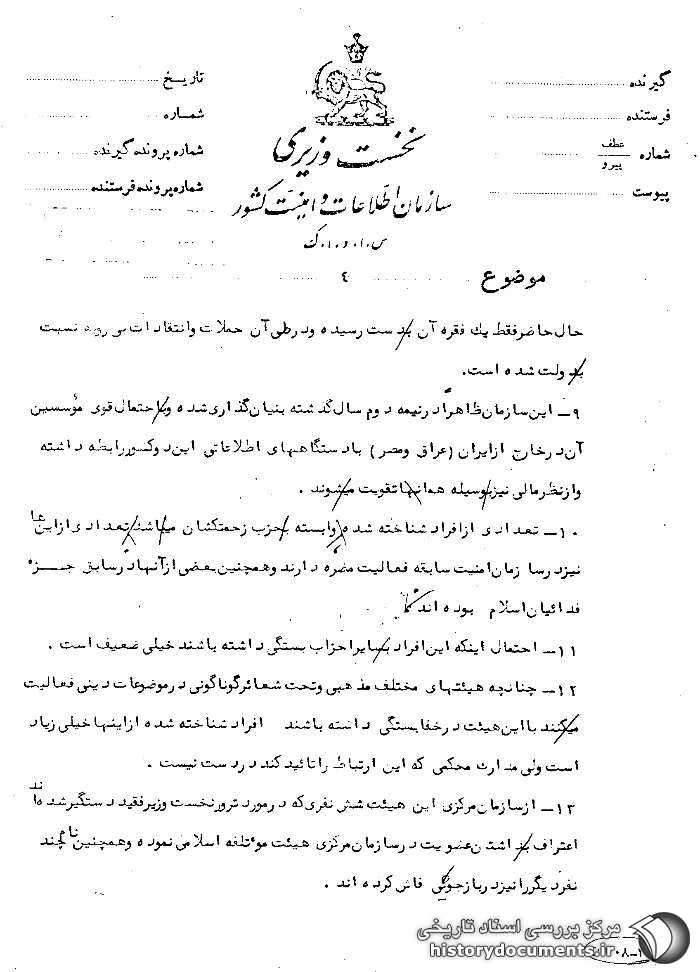 گیرنده
فرستنده
شماره عطف
پیرو
پیوست
نخست وزیری
سازمان اطلاعات و امنیت کشور
س.ا.و.ا.ک
تاریخ
شماره
شماره پرونده گیرنده
شماره پرونده فرستنده
موضوع ٤
حال حاضر فقط یك فقره آن بدست رسیده ودرطی آن حملات وانتقادات بی رویه نسبت
بدولت شده است.
۹ـ این سازمان ظاهراً درنیمه دوم سال گذشته بنیان گذاری شده وباحتمال قوی مؤسسین
آن درخارج ازایران (عراق ومصر) بادستگاههای اطلاعاتی این دوکشور رابطه داشته
وازنظرمالی نیزبوسیله همانها تقویت میشوند .
۱۰ـ تعدادی ازافراد شناخته شده وابسته بحزب زحمتکشان میباشند تعدادی ازاین ها
نیزدرسا زمان امنیت سابقه فعالیت مضره دارند وهمچنین بعضی ازآنها درسابق جزء
فدائیان اسلام بوده اند
۱۱ـ احتمال اینکه این افراد بسایراحزاب بستگی داشته باشند خیلی ضعیف است .
۱۲ـ چنانچه هیئتهای مختلف مذهبی وتحت شعائرگوناگونی درموضوعات دینی فعالیت
میکنند بااین هیئت درخفابستگی داشته باشند افراد شناخته شده ازاینها خیلی زیاد
است ولی مدارك محکمی که این ارتباط راتائید کند دردست نیست .
۱۳ـ ازسازمان مرکزی این هیئت شش نفری که درمورد ترورنخست وزیرفقید دستگیرشده اند
اعتراف بداشتن عضویت درسازمان مرکزی هیئت موتلفه اسلامی نموده وهمچنین نام چند
نفردیگررانیزدربازجوئی فاش کرده اند .
مرکز بررسی اسناد تاریخی
historydocuments.ir